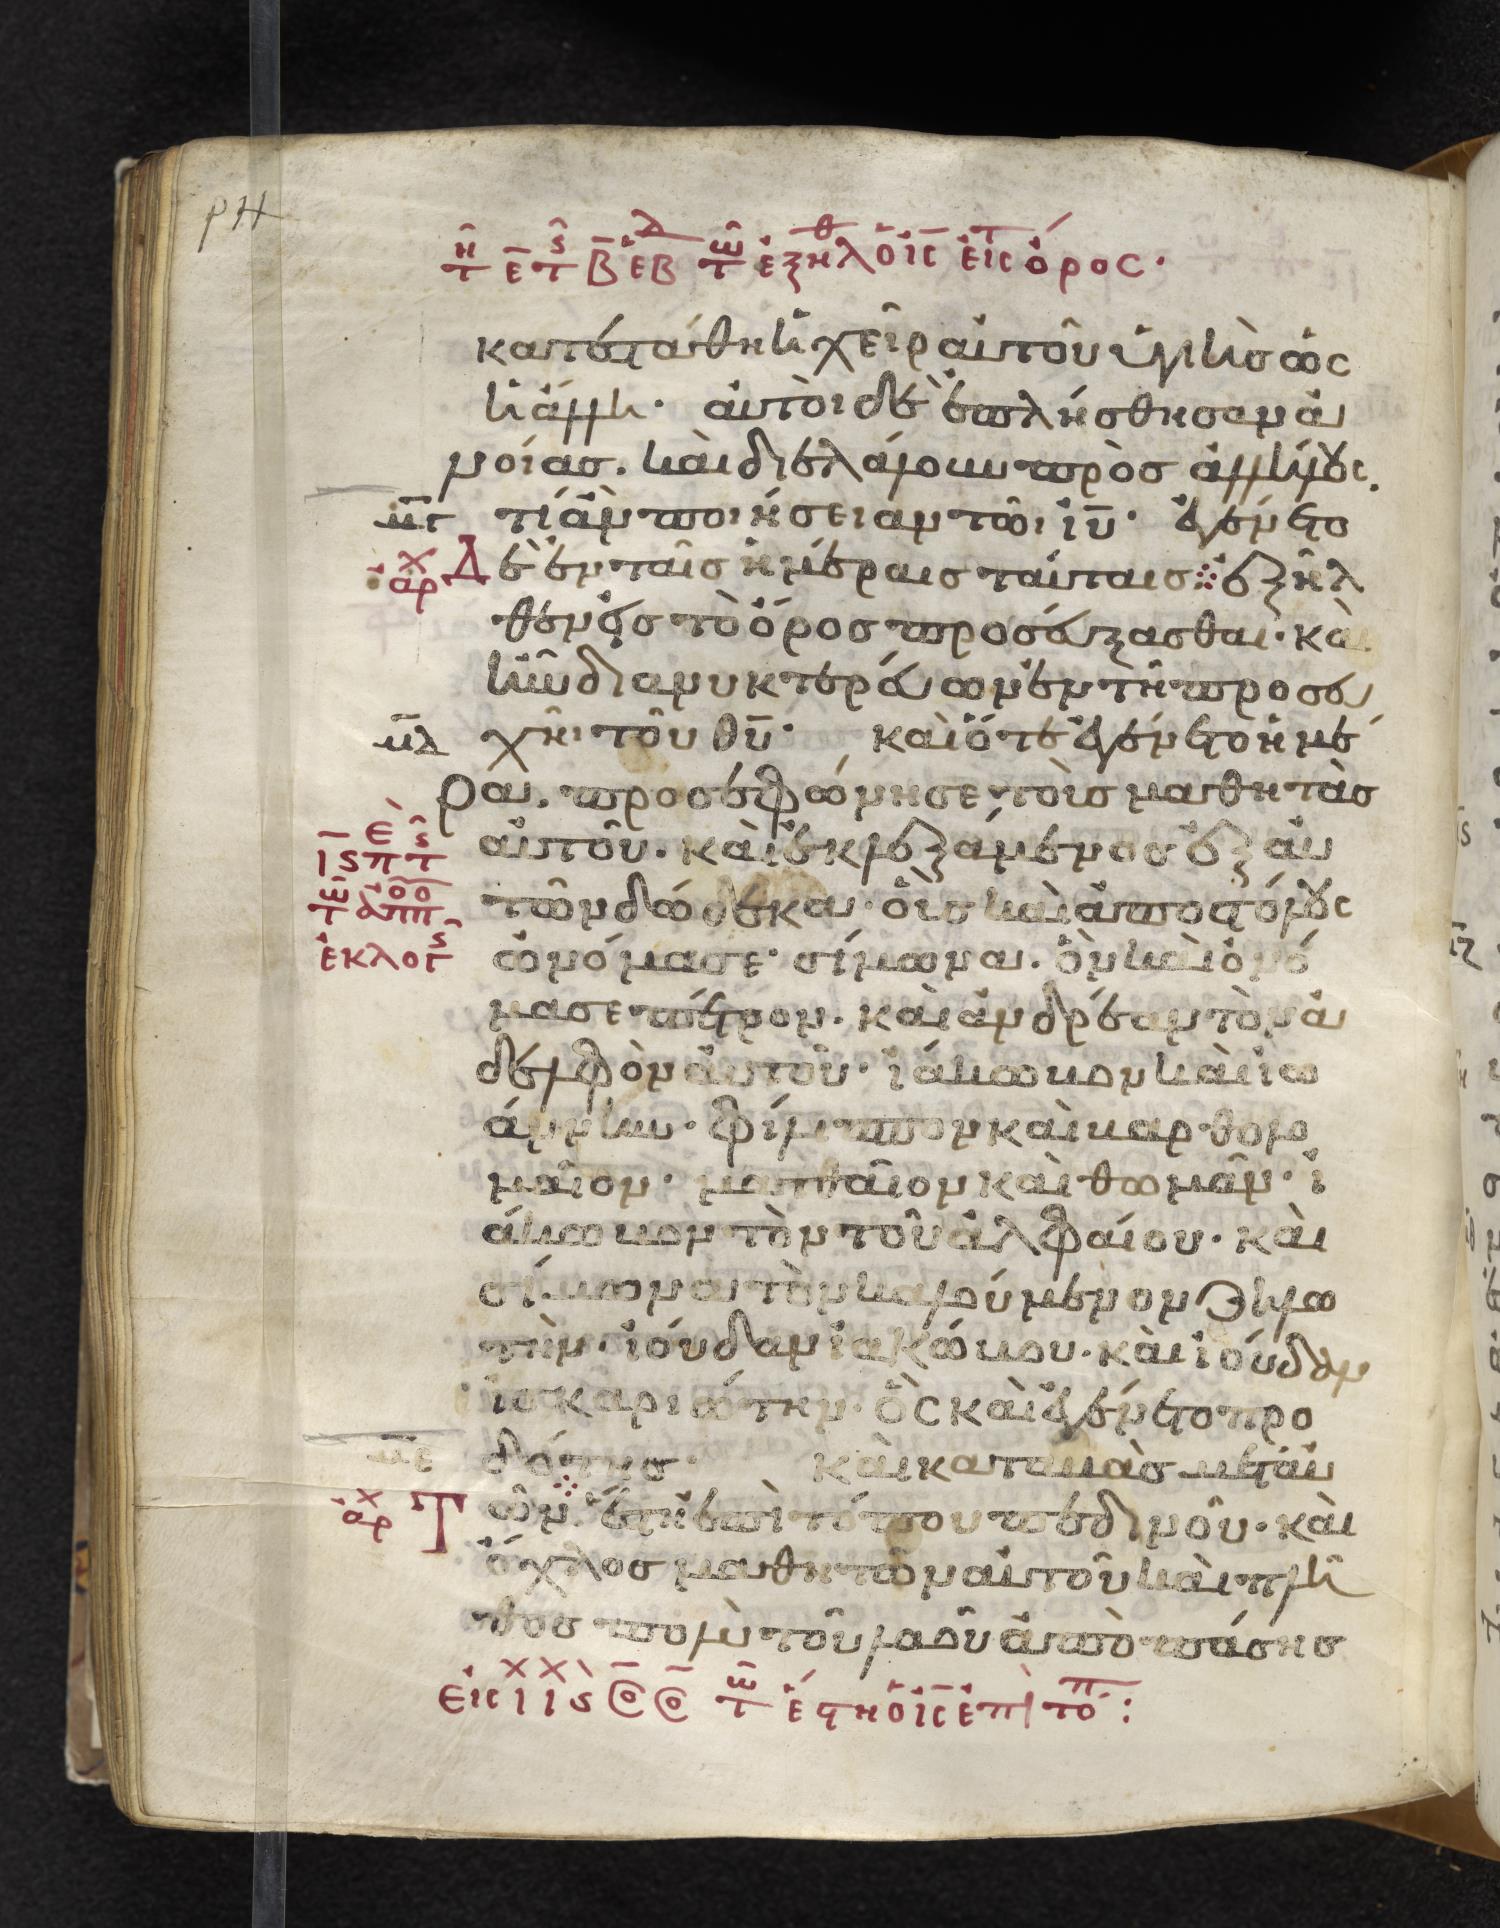 ρη
τῇ ε̄ τ ς β̄ ἑβδ τῷ ἐξῆλθ ὁ ις εἰς τ ὄρος·
κατεστάθη ἡ χεὶρ αὐτοῦ ὑγιὴς ὡς
ἡ ἄλλη· αὐτοὶ δὲ ἐπλήσθησαν ἀ
νοίας. καὶ διελάλουν πρὸς ἀλλήλους.
μγ τί ἂν ποιήσειαν τῶ ιυ· ἐγένετο
ἀρχ Δὲ ἐν ταῖς ἡμέραις ταύταις ἐξῆλ
θεν εἰς τὸ ὄρος προσεύξασθαι· καὶ
ἦν διανυκτερεύων ἐν τῆ προσευ
μδ χῆ τοῦ θυ· καὶ ὅτε ἐγένετο ἡμέ
ρα. προσεφώνησε τοὺς μαθητὰς
αὐτοῦ. καὶ ἐκλεξάμενος ἐξ αὐ
τῶν δώδεκα· οὓς καὶ ἀποστόλους
ὠνόμασε· σίμωνα. ὃν καὶ ὀνό
μασε πέτρον. καὶ ἀνδρέαν τὸν ἀ
δελφὸν αὐτοῦ· ἰάκωβον καὶ ἰω
άννην· φίλιππον καὶ βαρθολο
μαῖον· ματθαῖον καὶ θωμᾶν· ἰ
άκωβον τὸν τοῦ ἀλφαίου· καὶ
σίμωνα τὸν καλούμενον ζηλω
τὴν· ἰούδαν ἰακώβου· καὶ ἰούδαν
ἰσκαριώτην· ὃς καὶ ἐγένετο προ
με δότης· καὶ καταβὰς μετ αὐ
ἀρχ Τῶν ἔστη ἐπὶ τόπου πεδινοῦ· καὶ
ὄχλος μαθητῶν αὐτοῦ καὶ πλῆ
θος πολὺ τοῦ λαοῦ ἀπὸ πάσης
τῷ ἔστη ὁ ις ἐπὶ τόπ :